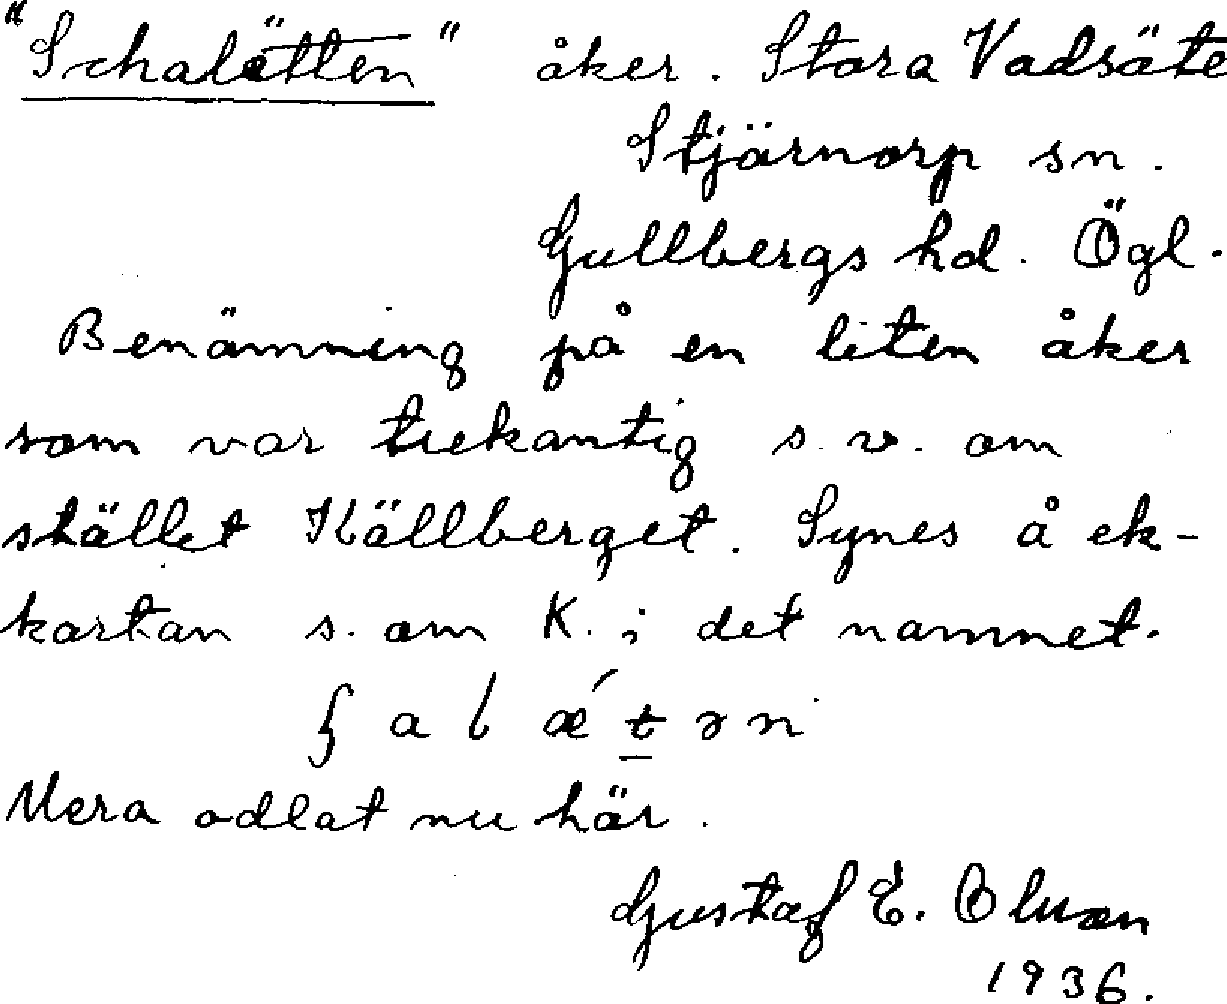 "Schalätten" åker. Stora Vadsäte
Stjärnorp sn.
Gullbergs hd. Ögl.
Benämning på en liten åker
som var trekantig s.v. om
stället Källberget. Synes å ek-
kartan s. om K. i det namnet.
ʃ a l ǽ t ə n
Mera odlat nu här.
Gustaf E. Olsson
1936.